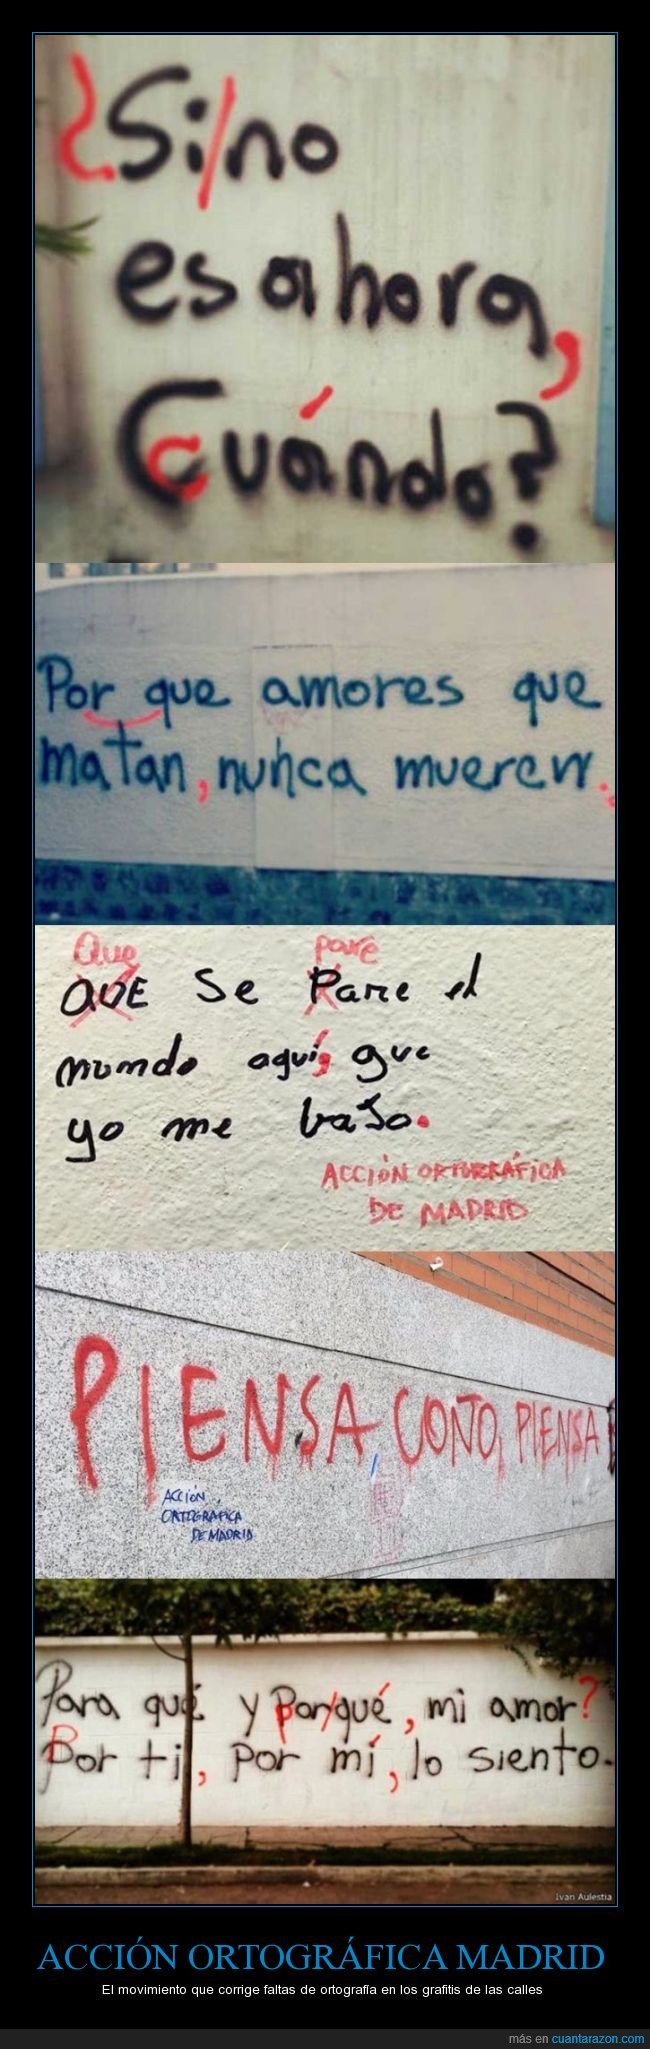 ¿Si/no
es ahora,
cuándo?
Por que amores que
matan, nunca mueren.
Que pare
QUE se Pare el
mundo aquí, que
yo me bajo.
ACCIÓN ORTOGRÁFICA
DE MADRID
PIENSA, COÑO, PIENSA
ACCIÓN
ORTOGRÁFICA
DE MADRID
Para qué y por/qué, mi amor?
Por ti, por mí, lo siento.
Ivan Aulestia
ACCIÓN ORTOGRÁFICA MADRID
El movimiento que corrige faltas de ortografía en los grafitis de las calles
más en cuantarazon.com